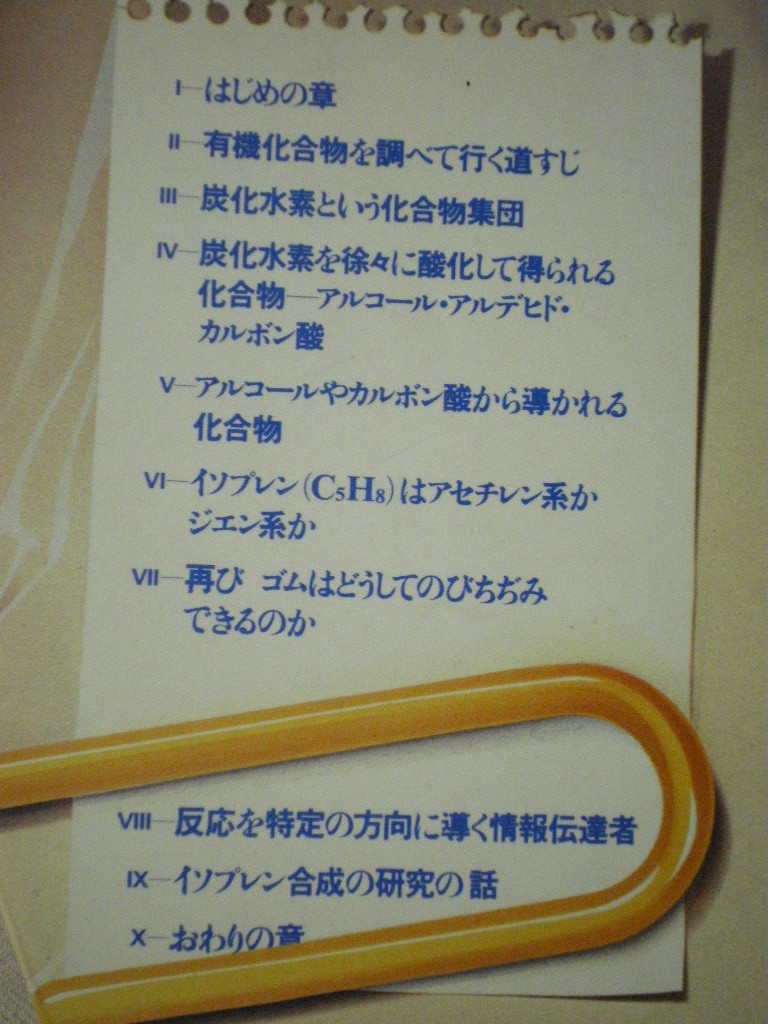 I—はじめの章
II—有機化合物を調べて行く道すじ
III—炭化水素という化合物集団
IV—炭化水素を徐々に酸化して得られる
化合物—アルコール・アルデヒド・
カルボン酸
V—アルコールやカルボン酸から導かれる
化合物
VI—イソプレン(C₅H₈)はアセチレン系か
ジエン系か
VII—再び ゴムはどうしてのびちぢみ
できるのか
VIII—反応を特定の方向に導く情報伝達者
IX—イソプレン合成の研究の話
X—おわりの章